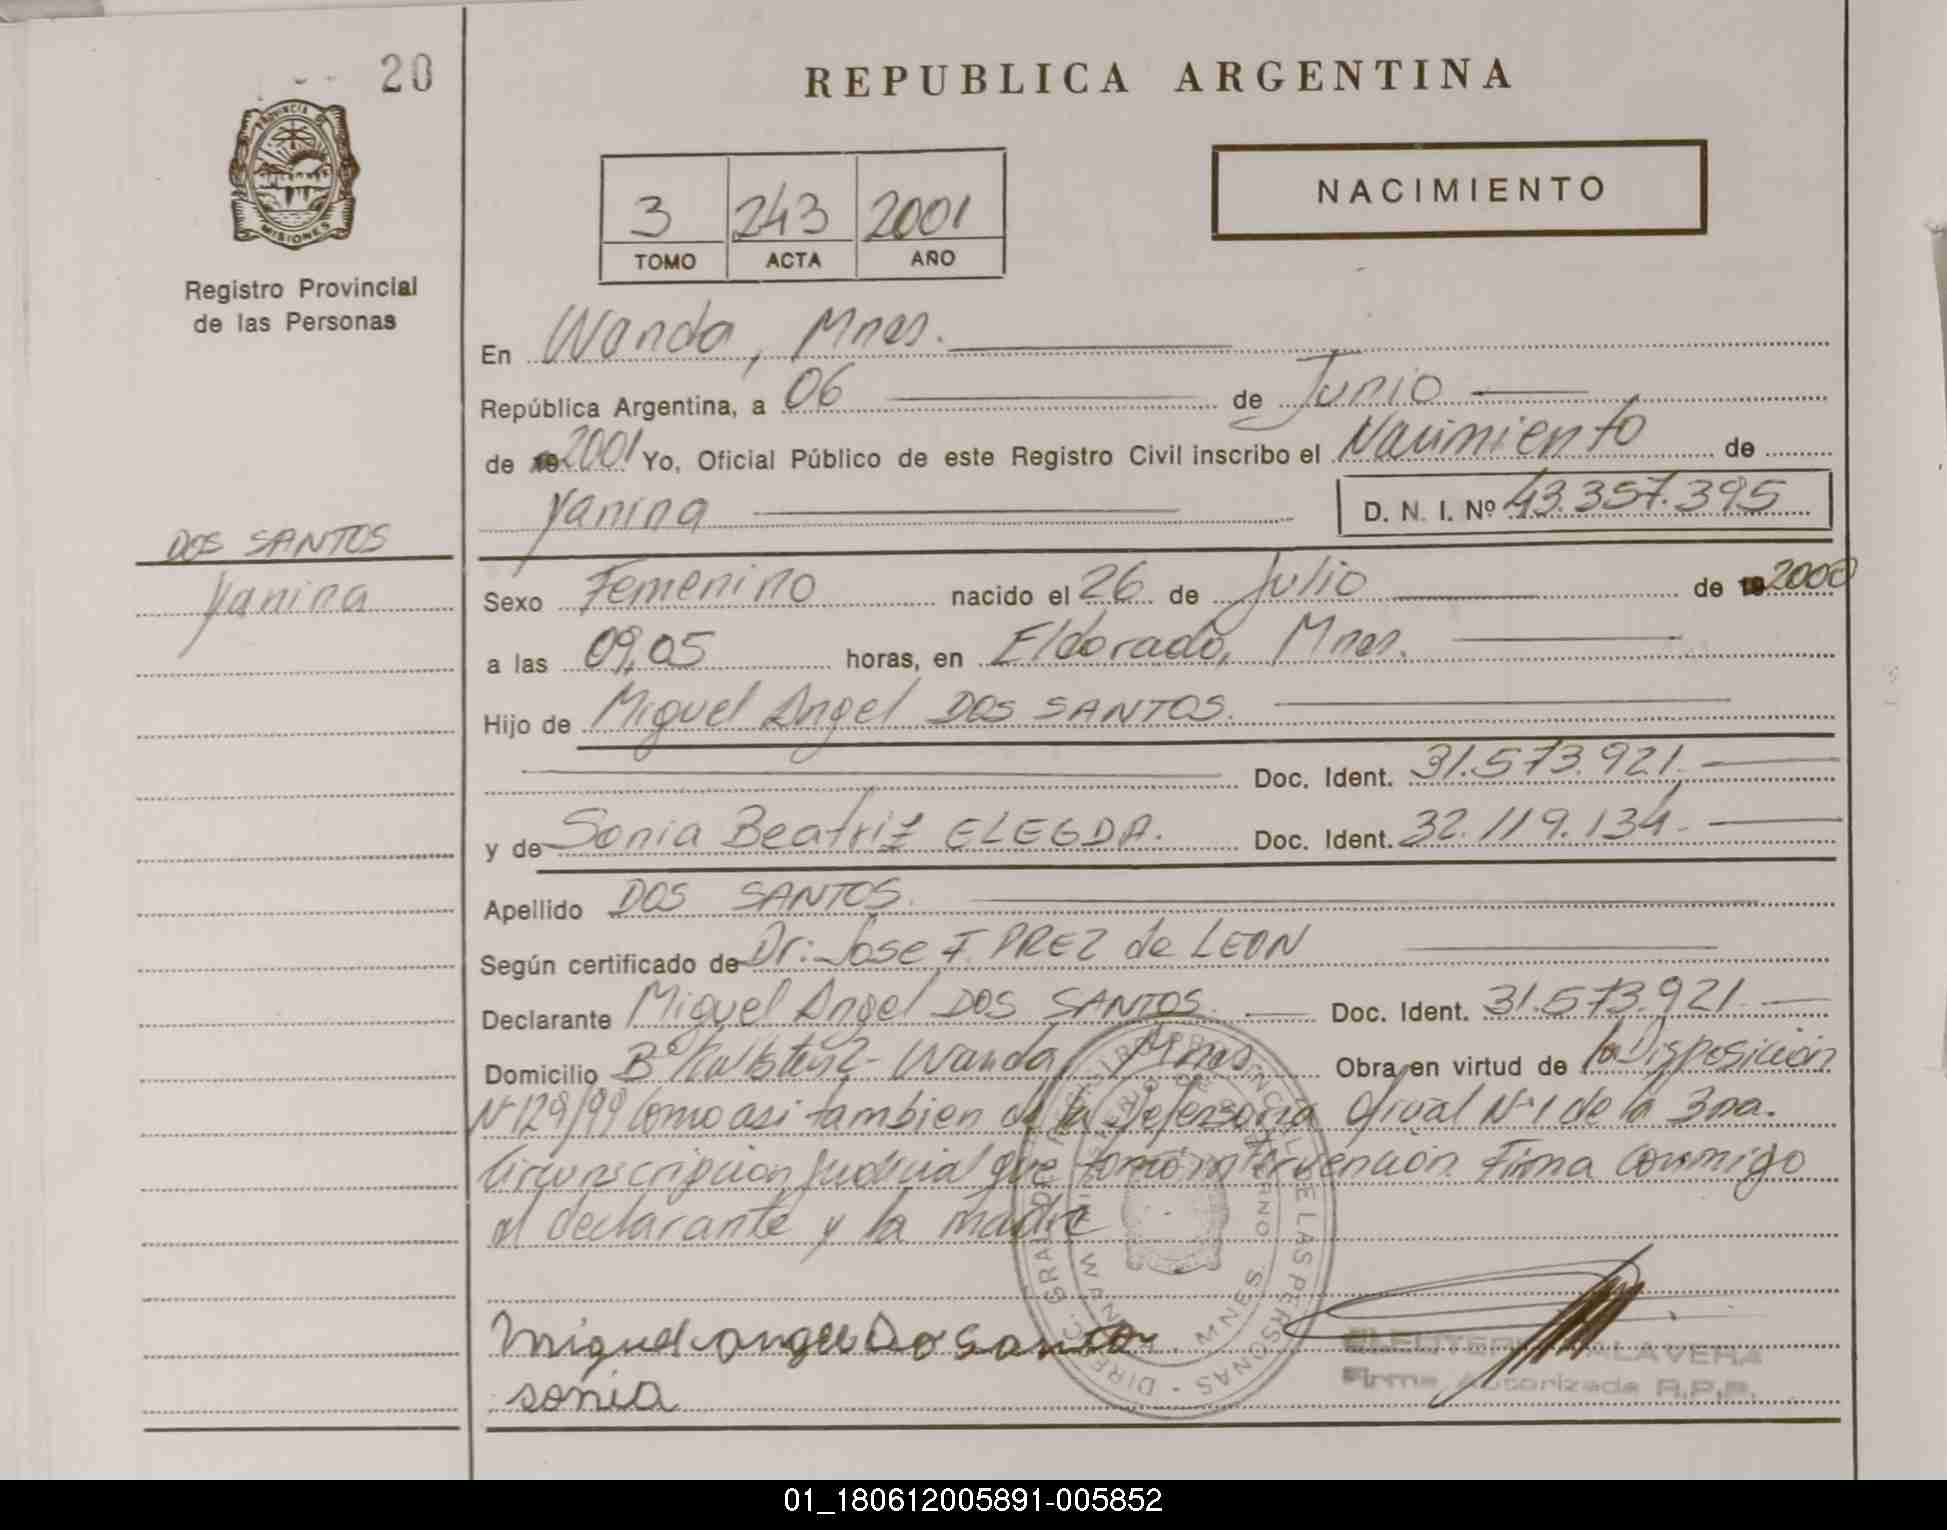 20
PROVINCIA DE
MISIONES
Registro Provincial
de las Personas
DOS SANTOS
Yanina
REPUBLICA ARGENTINA
3 243 2001
TOMO ACTA AÑO
NACIMIENTO
En Wanda, Mnes.
República Argentina, a 06 de Junio
de 2001 Yo, Oficial Público de este Registro Civil inscribo el Nacimiento de
Yanina D. N. I. Nº 43.357.395
Sexo Femenino nacido el 26 de Julio de 2000
a las 09,05 horas, en Eldorado, Mnes.
Hijo de Miguel Angel DOS SANTOS.
Doc. Ident. 31.573.921.
y de Sonia Beatriz ELEGDA. Doc. Ident. 32.119.134.
Apellido DOS SANTOS.
Según certificado de Dr: Jose F. PREZ de LEON
Declarante Miguel Angel DOS SANTOS Doc. Ident. 31.573.921.
Domicilio Bº Wanda, Mnes Obra en virtud de la Disposicion
Nº 129/99 como asi tambien de la Defensoria Oficial Nº 1 de la 3ra.
Circunscripcion Judicial que tomó intervencion Firma conmigo
el declarante y la madre
Miguel angel Do Santo
sonia
ELEUTERIO TALAVERA
Firma Autorizada R.P.P.
01_180612005891-005852